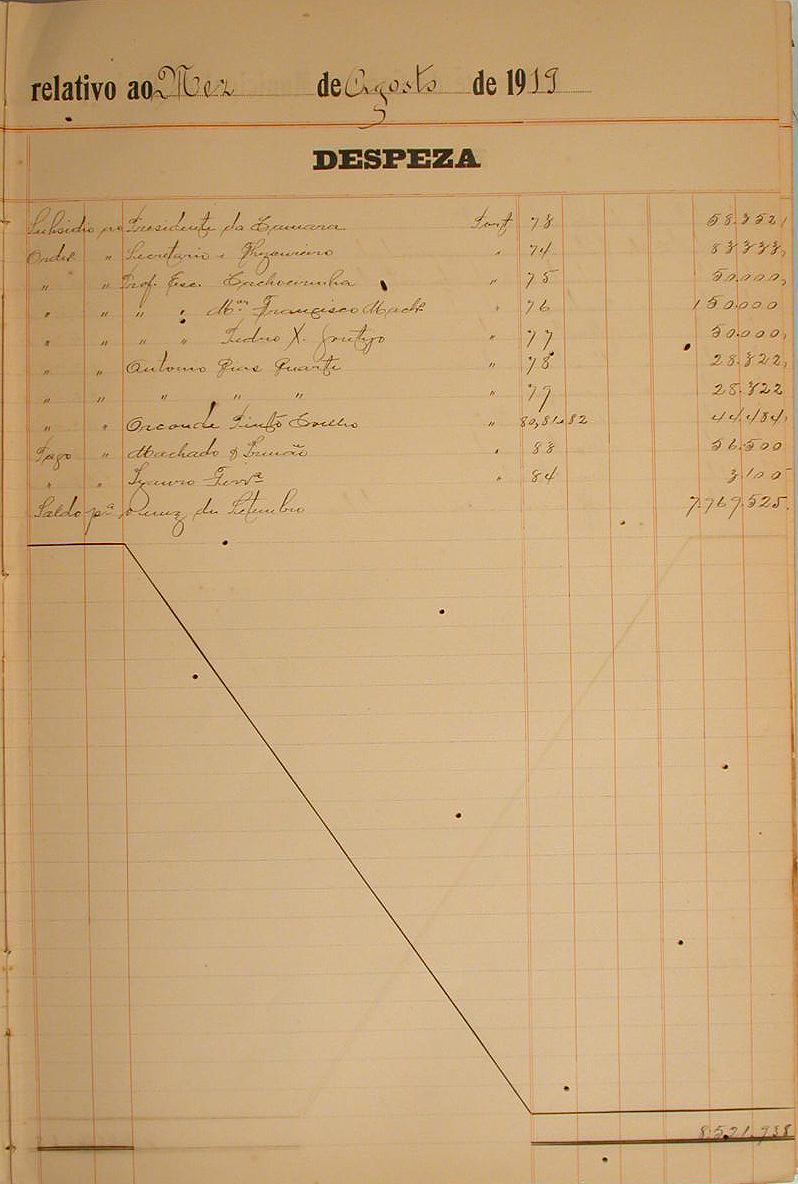 relativo ao Mez de Agosto de 1919
DESPEZA
Subsidio ao Presidente da Camara Port 73 58.352,
Orden " Secretario e Thezoureiro " 74 83.333,
" " Prof. Esc. Cachoeirinha " 75 50.000,
" " " " Mᵃˢ Francisco Machᵒ " 76 150.000
" " " " Pedro X. Gontijo " 77 50.000,
" " Antonio Dias Duarte " 78 28.322,
" " " " " " 79 28.322
" " Pinto Coelho " 80,81 e 82 44.484,
Pago " Machado & " 83 56.500
" " Ferrᵃ " 84 3.100
Saldo pᵃ o mez de Setembro 7.769.525.
8.521.938